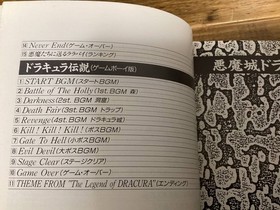 14 Never End(ゲーム・オーバー)
15 悪魔たちに送るララバイ(ランキング)
ドラキュラ伝説(ゲームボーイ版)
1 START BGM(スタートBGM)
2 Battle of The Holly(1st. BGM 森)
3 Darkness(2st. BGM 洞窟)
4 Death Fair(3st. BGM トラップ)
5 Revenge(4st. BGM ドラキュラ城)
6 Kill! Kill! Kill!(ボスBGM)
7 Gate To Hell(小ボスBGM)
8 Evil Devil(大ボスBGM)
9 Stage Clear(ステージクリア)
10 Game Over(ゲーム・オーバー)
11 THEME FROM "The Legend of DRACURA"(エンディング)
悪魔城ドラ